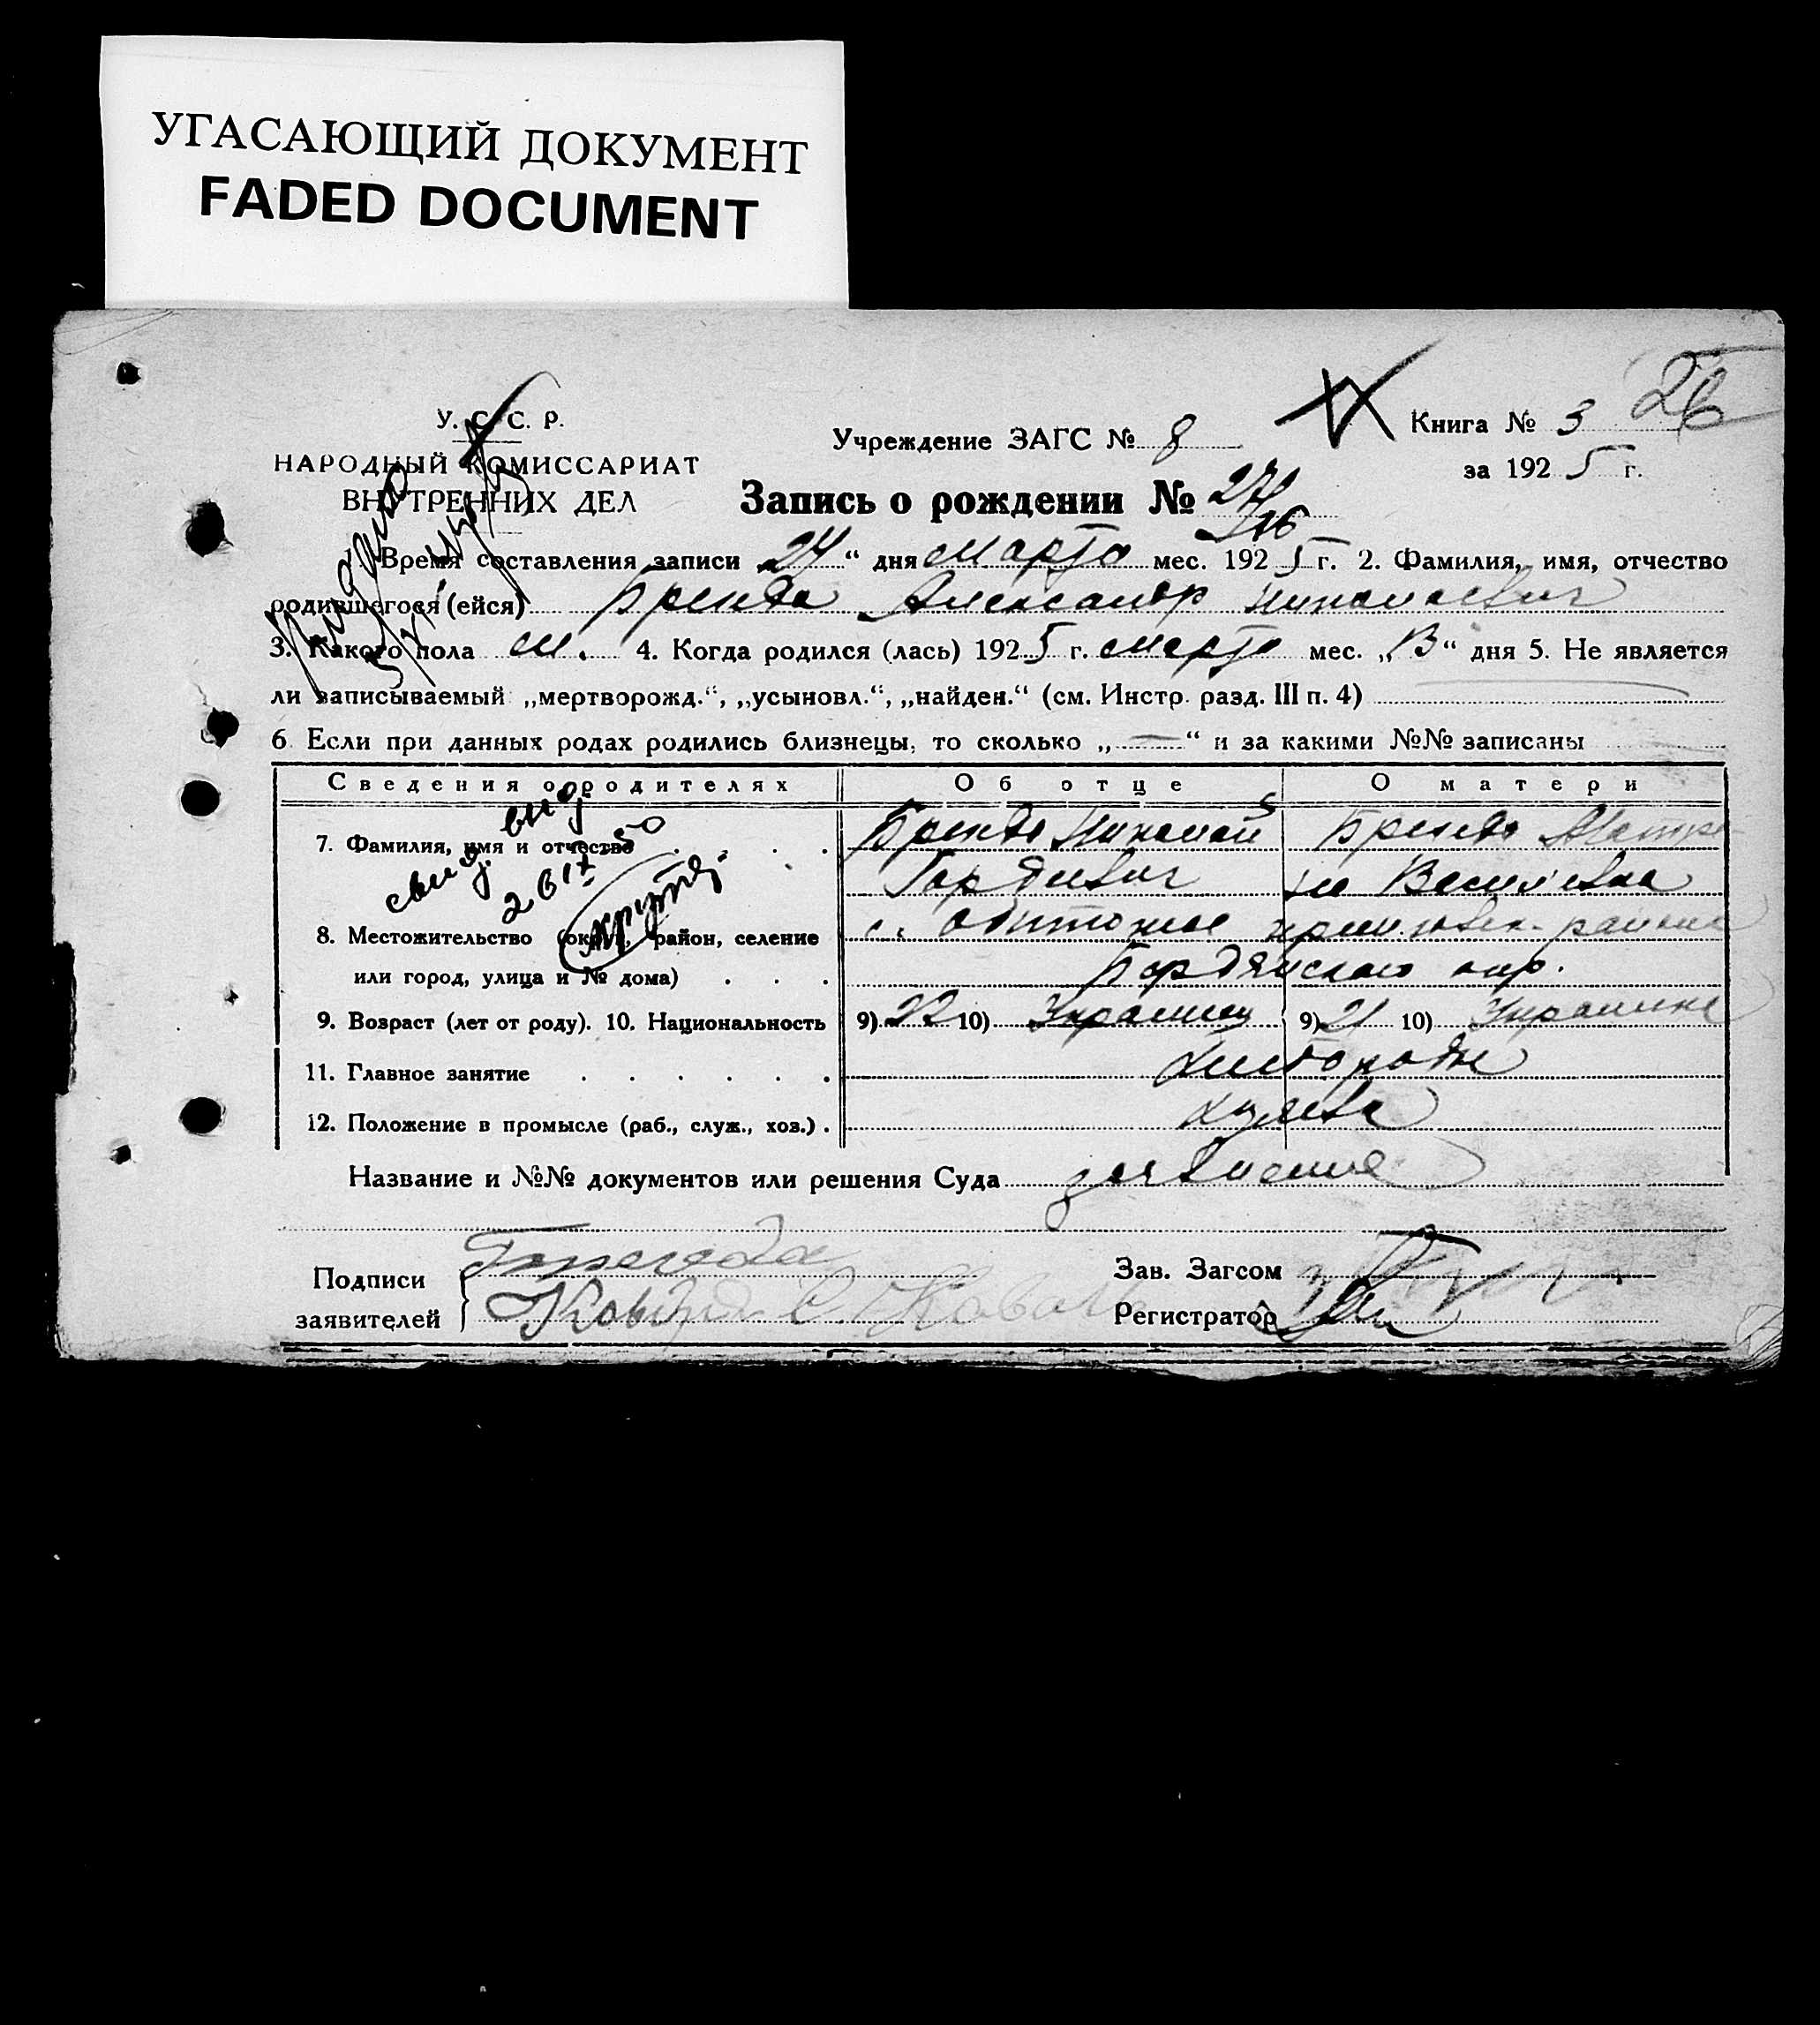 УГАСАЮЩИЙ ДОКУМЕНТ
FADED DOCUMENT
У. С. С. Р.
НАРОДНЫЙ КОМИССАРИАТ
ВНУТРЕННИХ ДЕЛ
Учреждение ЗАГС № 8
Книга № 3
за 1925 г.
Запись о рождении №
Время составления записи 24 “ дня марта мес. 1925 г. 2. Фамилия, имя, отчество
родившегося (ейся) Бренда Александр Николаевич
3. Какого пола м. 4. Когда родился (лась) 1925 г. марта мес. „ “ дня 5. Не является
ли записываемый „мертворожд.“, „усыновл.“, „найден.“ (см. Инстр. разд. III п. 4)
6. Если при данных родах родились близнецы, то сколько „—“ и за какими №№ записаны
Сведения о родителях Об отце О матери
7. Фамилия, имя и отчество Бренда Николай Бренда Матре-
Гордиевич на Васильевна
8. Местожительство (округ, район, селение с. района
или город, улица и № дома) Бердянского окр.
9. Возраст (лет от роду). 10. Национальность 9) 22 10) Украинец 9) 21 10) Украинка
11. Главное занятие Хлебороды
12. Положение в промысле (раб., служ., хоз.) хозяева
Название и №№ документов или решения Суда заявление
Подписи
заявителей
Зав. Загсом
Регистратор
свид. выд.